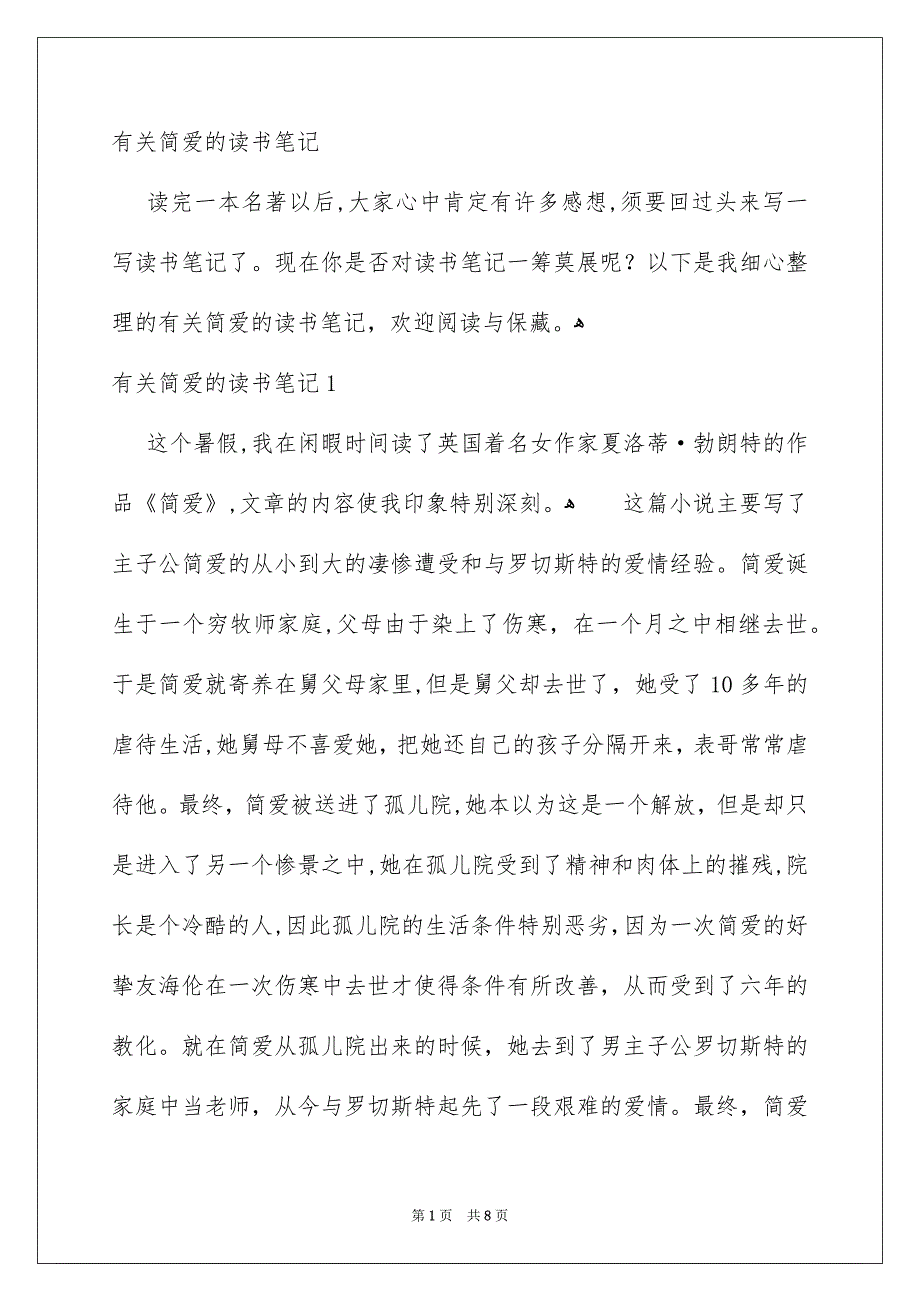 有关简爱的读书笔记
读完一本名著以后,大家心中肯定有许多感想,须要回过头来写一
写读书笔记了。现在你是否对读书笔记一筹莫展呢？以下是我细心整
理的有关简爱的读书笔记，欢迎阅读与保藏。ﻫ
有关简爱的读书笔记1
这个暑假,我在闲暇时间读了英国着名女作家夏洛蒂·勃朗特的作
品《简爱》,文章的内容使我印象特别深刻。ﻫ 这篇小说主要写了
主子公简爱的从小到大的凄惨遭受和与罗切斯特的爱情经验。简爱诞
生于一个穷牧师家庭,父母由于染上了伤寒，在一个月之中相继去世。
于是简爱就寄养在舅父母家里,但是舅父却去世了，她受了10多年的
虐待生活,她舅母不喜爱她，把她还自己的孩子分隔开来，表哥常常虐
待他。最终，简爱被送进了孤儿院,她本以为这是一个解放，但是却只
是进入了另一个惨景之中,她在孤儿院受到了精神和肉体上的摧残,院
长是个冷酷的人,因此孤儿院的生活条件特别恶劣,因为一次简爱的好
挚友海伦在一次伤寒中去世才使得条件有所改善，从而受到了六年的
教化。就在简爱从孤儿院出来的时候，她去到了男主子公罗切斯特的
家庭中当老师，从今与罗切斯特起先了一段艰难的爱情。最终，简爱
第1页 共8页